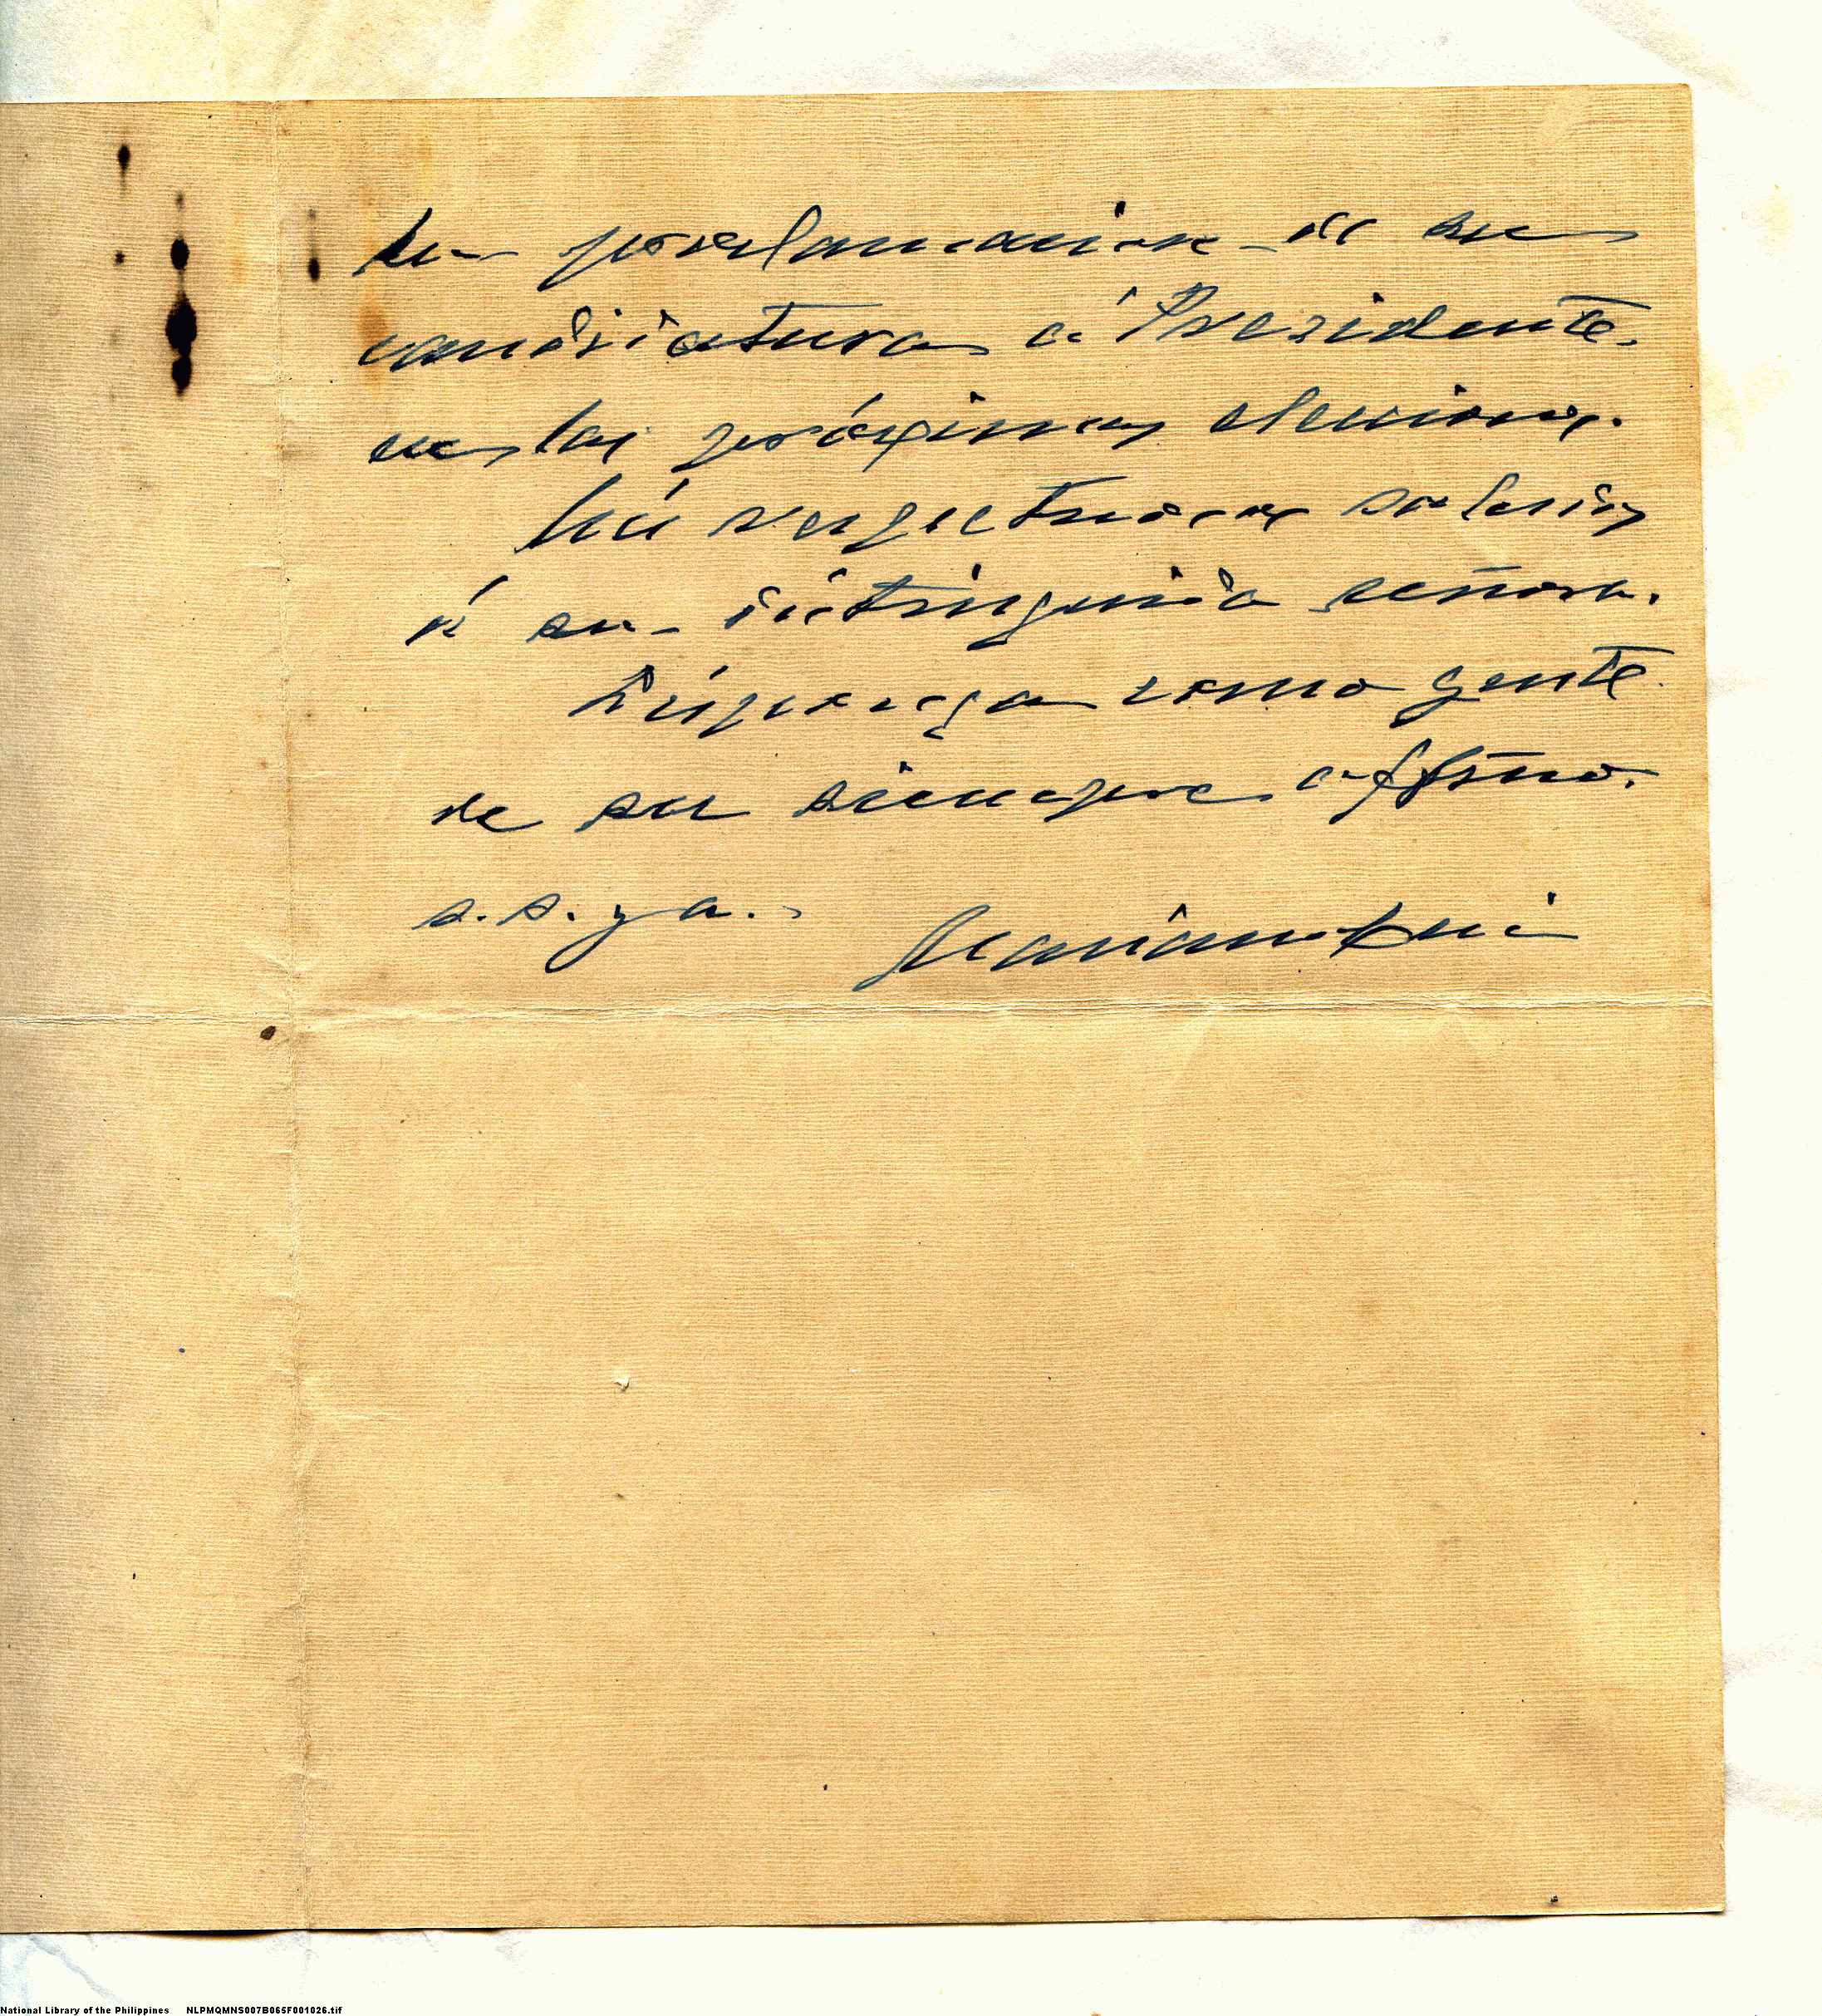 la proclamacion de su
candidatura á Presidente
en las próximas elecciones.
Mis respetuosos saludos
á su distinguida señora.
Disponga como guste
de su siempre affmo.
s. s. y a.
National Library of the Philippines NLPMQMNS007B065F001026.tif